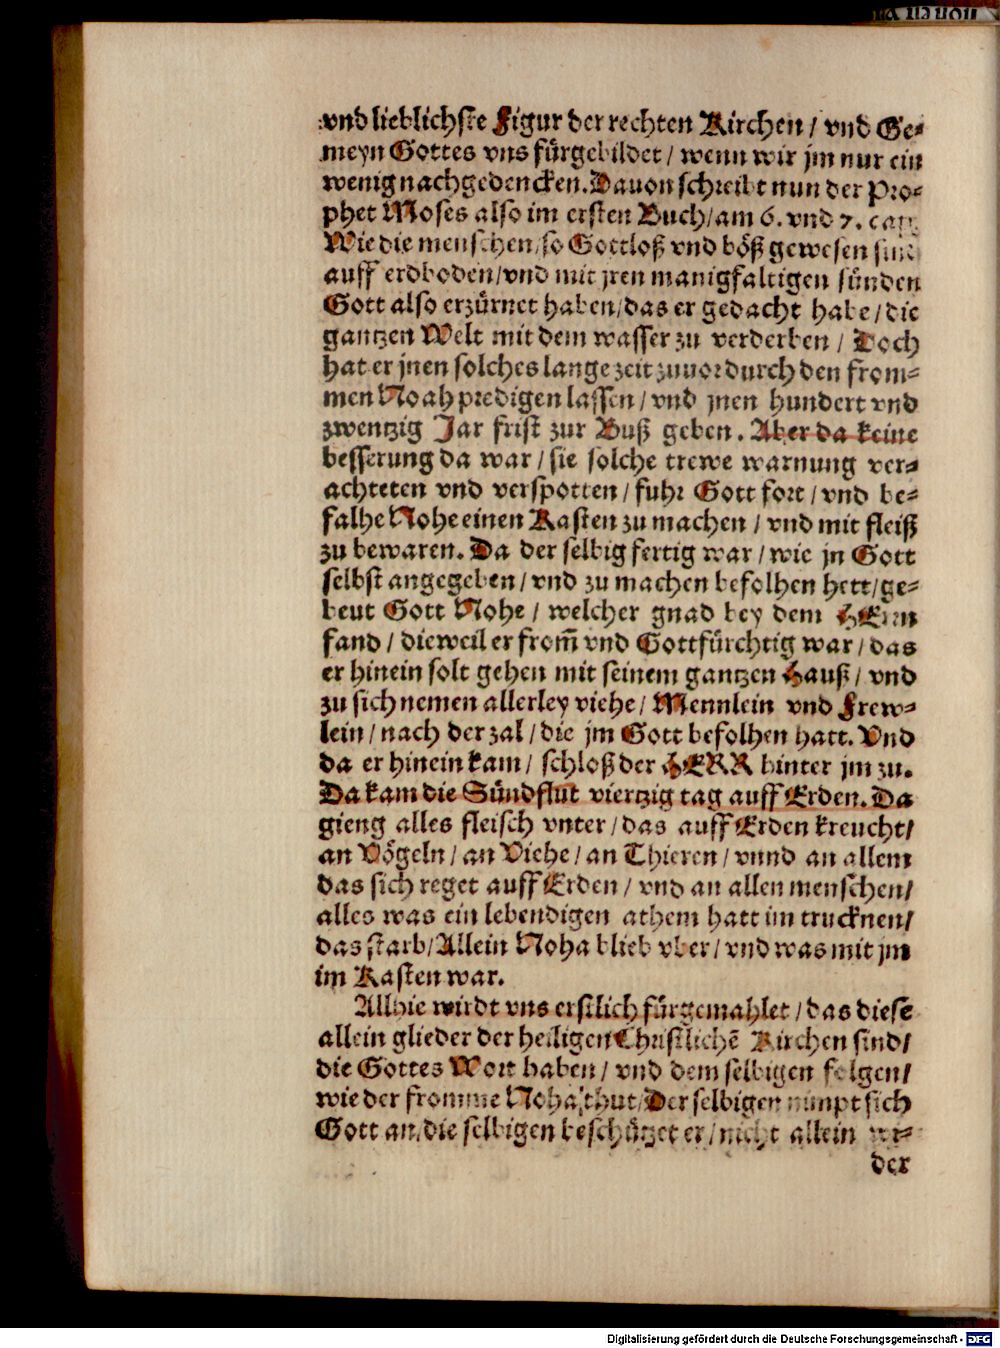 vnd lieblichste Figur der rechten Kirchen / vnd Ge-
meyn Gottes vns fürgebildet / wenn wir jm nur ein
wenig nachgedencken. Dauon schreibt nun der Pro-
phet Moses also im ersten Buch / am 6. vnd 7. cap.
Wie die menschen / so Gottloß vnd böß gewesen sind
auff erdboden / vnd mit jren manigfaltigen sünden
Gott also erzürnet haben / das er gedacht habe / die
gantzen Welt mit dem wasser zu verderben / Doch
hat er jnen solches lange zeit zuuor durch den from-
men Noah predigen lassen / vnd jnen hundert vnd
zwentzig Jar frist zur Buß geben. Aber da keine
besserung da war / sie solche trewe warnung ver-
achteten vnd verspotten / fuhr Gott fort / vnd be-
falhe Nohe einen Kasten zu machen / vnd mit fleiß
zu bewaren. Da der selbig fertig war / wie jn Gott
selbst angegeben / vnd zu machen befolhen hett / ge-
beut Gott Nohe / welcher gnad bey dem HErrn
fand / dieweil er from̃ vnd Gottfürchtig war / das
er hinein solt gehen mit seinem gantzen Hauß / vnd
zu sich nemen allerley viehe / Mennlein vnd Frew-
lein / nach der zal / die jm Gott befolhen hatt. Vnd
da er hinein kam / schloß der HERR hinter jm zu.
Da kam die Sündflut viertzig tag auff Erden. Da
gieng alles fleisch vnter / das auff Erden kreucht /
an Vögeln / an Viehe / an Thieren / vnnd an allem
das sich reget auff Erden / vnd an allen menschen /
alles was ein lebendigen athem hatt im trucknen /
das starb / Allein Noha blieb vber / vnd was mit jm
im Kasten war.
Allhie wirdt vns erstlich fürgemahlet / das diese
allein glieder der heiligen Christlichē Kirchen sind /
die Gottes Wort haben / vnd dem selbigen folgen /
wie der fromme Noha thut / Der selbigen nimpt sich
Gott an / die selbigen beschützet er / nicht allein wi-
der
Digitalisierung gefördert durch die Deutsche Forschungsgemeinschaft - DFG